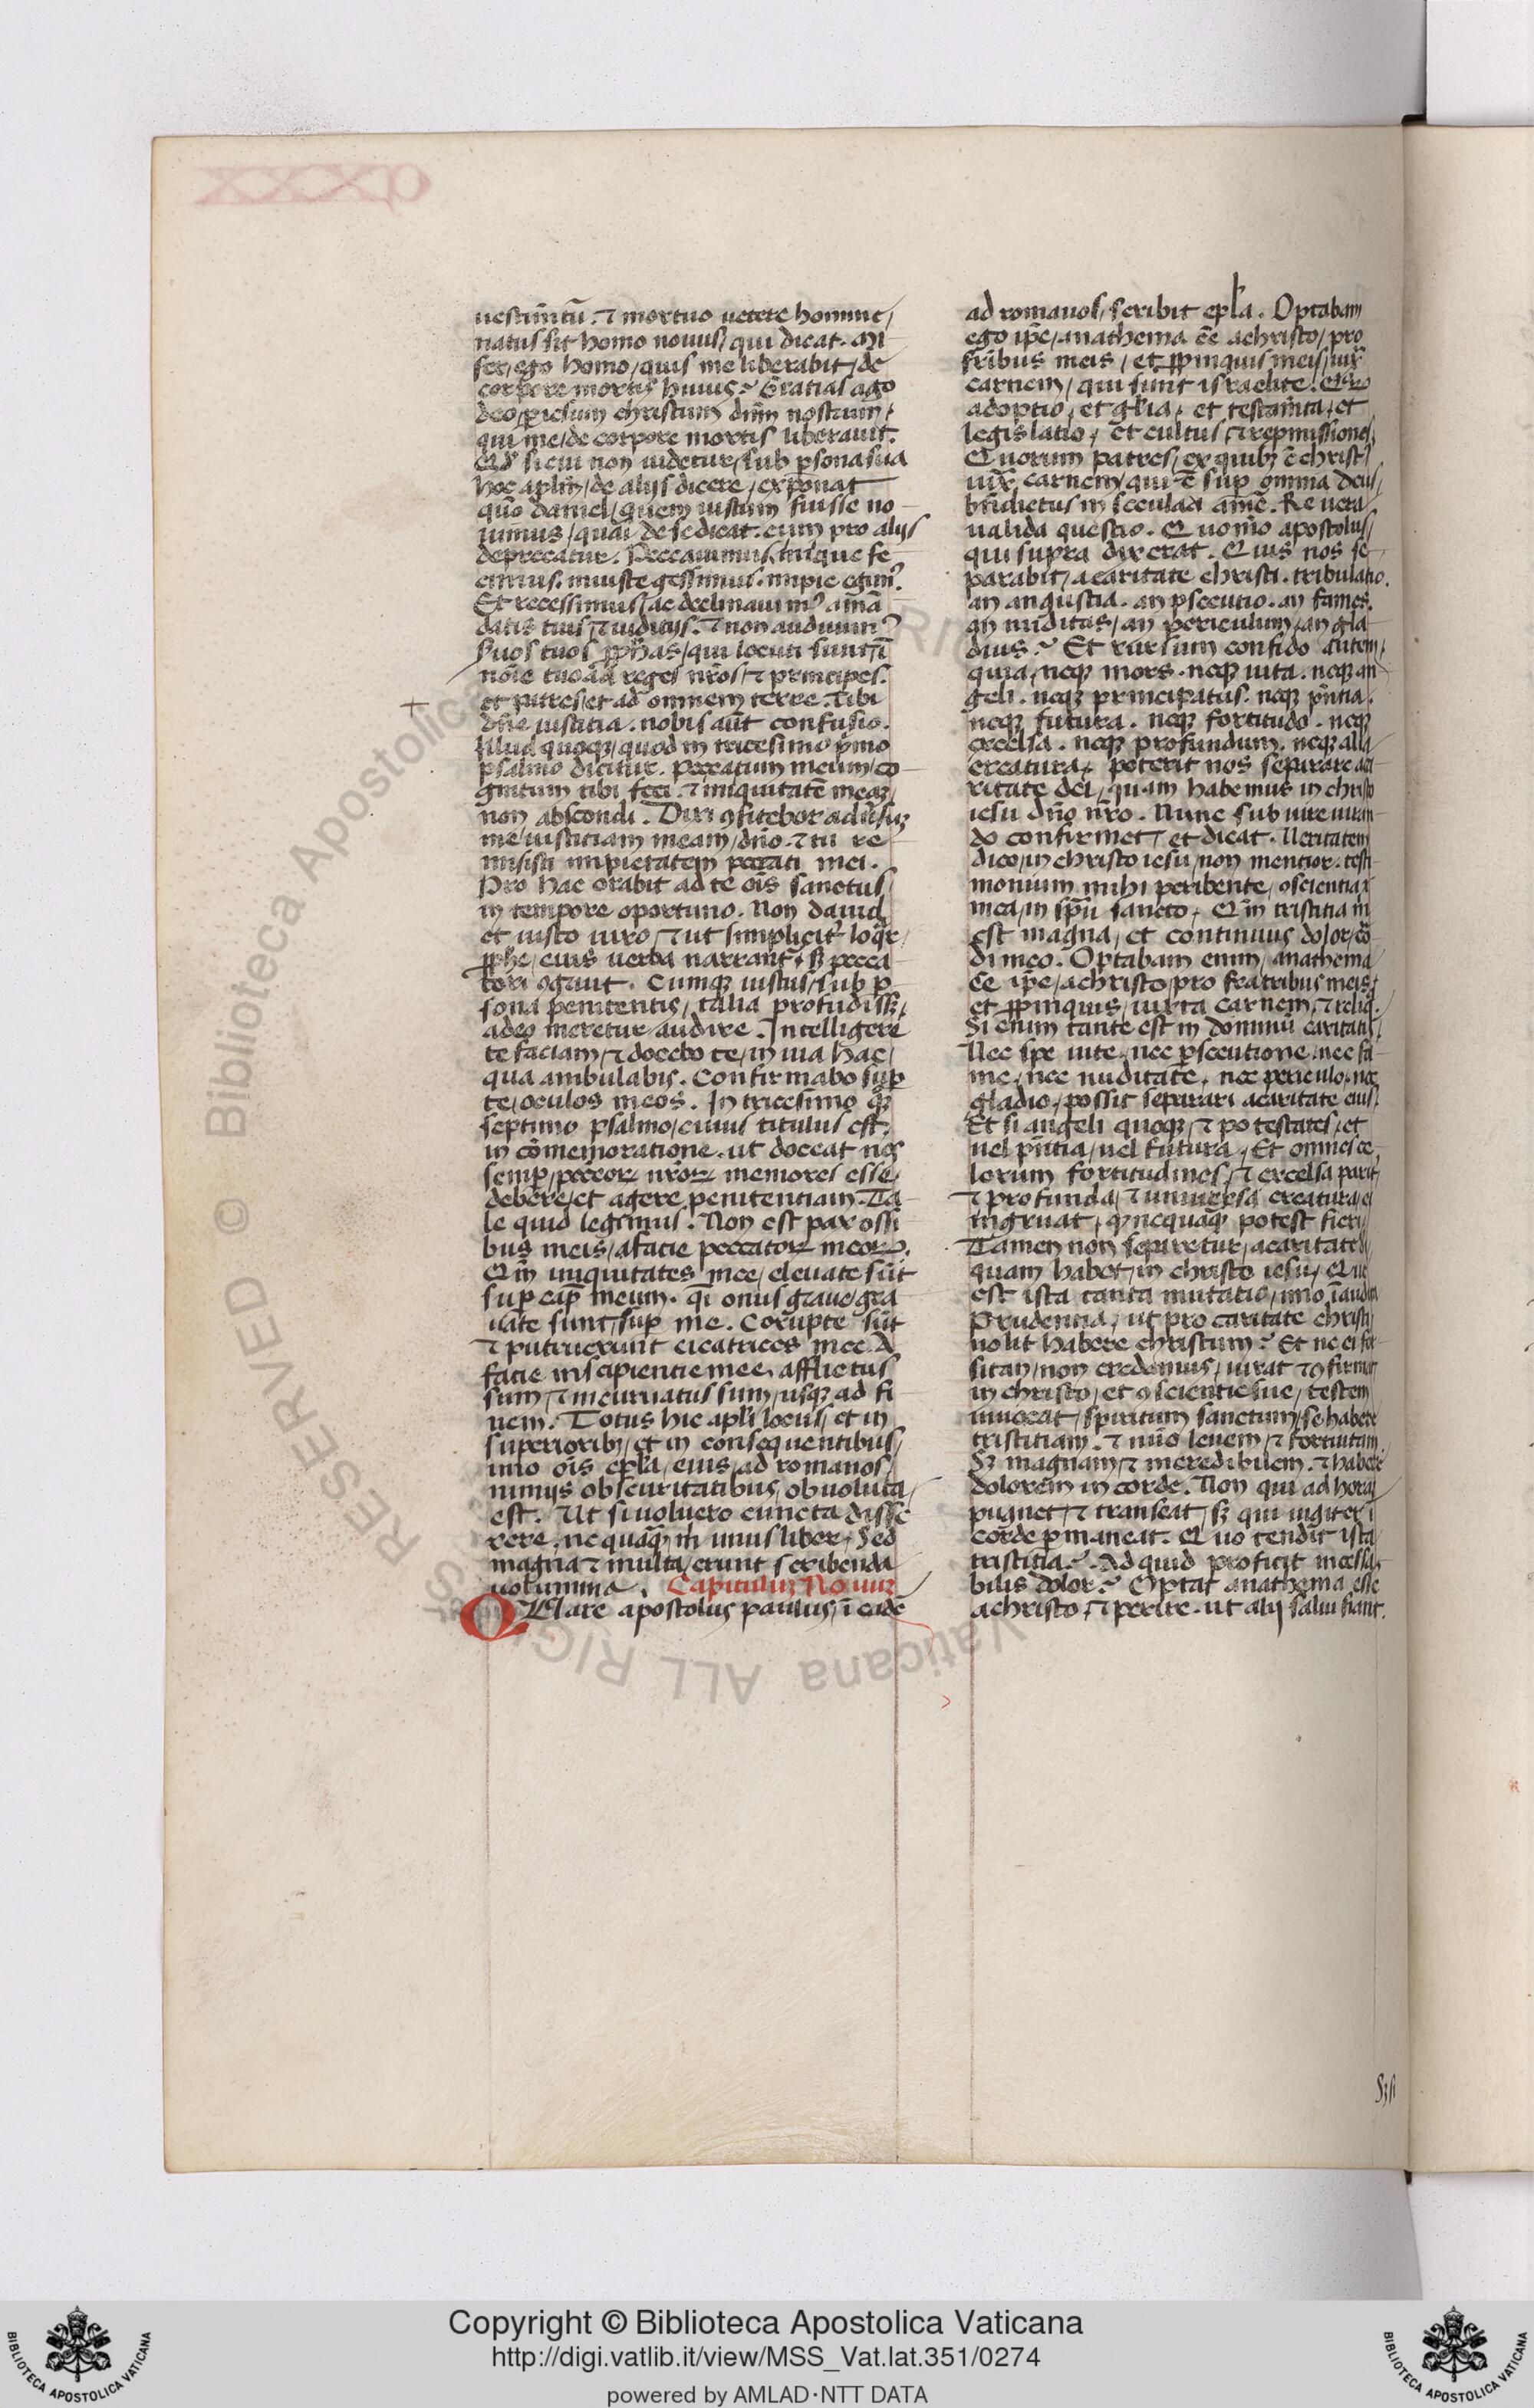 uestim̄tū. ⁊ mortuo uetere homine/
natus sit homo nouus/ qui dicat. Mi
ser/ ego homo/ quis me liberabit/ de
corpore mortis huius? Gratias ago
deo/ per iesum christum dn̄m nostrum/
qui me/ de corpore mortis liberauit.
Qd̓ si cui non uidetur/ sub ꝑsona sua
hoc apl̄m/ de alijs dicere/ exponat
quō daniel/ quem iustum fuisse no
uimus/ quasi de se dicat. cum pro alijs
deprecatur. Peccauimus/ inique fe
cimus. iniuste gessimus. impie egimꝰ.
Et recessimus/ ac declinauimꝰ a mā
datis tuis/ ⁊ iudicijs. ⁊ non audiuimꝰ
seruos tuos ꝓphās/ qui locuti sunt/ ī
noīe tuo ad reges nr̄os/ ⁊ principes.
et patres/ et ad omnem terre. Tibi
dn̄e iustitia. nobis aūt confusio.
Illud quoqꝫ/ quod in tricesimo pͥmo
psalmo dicitur. Peccatum meum/ co
gnitum tibi feci. ⁊ iniquitatē meaꝫ/
non abscondi. Dixi ꝯfitebor aduersuꝫ
me/ iusticiam meam/ dn̄o. ⁊ tu re
misisti impietatem peccati mei.
Pro hac orabit ad te oīs sanctus/
in tempore oportuno. Non dauid
et iusto uiro/ ⁊ ut simplicit̓ loq̄r/
ꝓphe/ cuius uerba narrant̓/ sꝫ pecca
tori ꝯgrūt. Cumqꝫ iustus/ sub ꝑ
sona penitentis/ talia profudissꝫ/
a deo meretur audire. Intelligere
te faciam/ ⁊ docebo te/ in uia hac/
qua ambulabis. Confirmabo suꝑ
te/ oculos meos. In tricesimo q̊qꝫ
septimo psalmo/ cuius titulus est/
in cōmemoratione. ut doceat nos
semꝑ/ peccoꝝ nr̄oꝝ memores esse/
debere/ et agere penitentiam. Ta
le quid legimus. Non est pax ossi
bus meis/ a facie peccatoꝝ meoꝝ.
Qm̄ iniquitates mee/ eleuate sūt
suꝑ caꝑ meum. q̄i onus graue/ gra
uate sunt/ suꝑ me. Corupte sūt
⁊ putruerunt cicatrices mee. A
facie insipientie mee. afflictus
sum/ ⁊ incuruatus sum/ usqꝫ ad fi
nem. Totus hic apl̄i locus/ et in
superioribꝫ/ et in consequentibus/
imo oīs epl̄a/ eius/ ad romanos/
nimijs obscuritatibus/ obuoluta/
est. Ut si uoluero cuncta disse
rere. nequaqꝫ m̄ unus liber. Sed
magna ⁊ multa/ erunt scribenda
uolumina. Capituluꝫ Nonuꝫ
QUare apostolus paulus/ ī eadē
ad romanos/ scribit epl̄a. Optabam
ego ip̄e/ anathema eē a christo/ pro
fr̄ibus meis/ et ꝓpinquis meis/ iux̄
carnem/ qui sunt israelite. Quoꝝ
adoptio/ et gl̄ia/ et testam̄ta/ et
legislatio/ et cultus/ ⁊ repmissiones/
Quorum patres/ ex quibꝫ ē christꝰ
iux̄ carnem/ qui ē suꝑ omnia deus/
bn̄dictus in secula. amē. Re uera
ualida questio. Quomō apostolus/
qui supra dixerat. Quis nos se
parabit/ a caritate christi. tribulatio.
an angustia. an ꝑsecutio. an fames.
an nuditas/ an periculum/ an gla
dius? Et rursum confido autem/
quia/ neqꝫ mors. neqꝫ uita. neqꝫ an
geli. neqꝫ principatus. neqꝫ pn̄tia.
neqꝫ futura. neqꝫ fortitudo. neqꝫ
excelsa. neqꝫ profundum. neqꝫ alia/
creatura/ poterit nos separare a ca
ritate dei/ quam habemus in christo
iesu dn̄o nr̄o. Nunc sub iureiuran
do confirmet/ et dicat. Ueritatem
dico/ in christo iesu/ non mentior. testi
monium mihi peribente/ ꝯscientia
mea/ in spū sancto/ Qm̄ tristitia m̄
est magna/ et continuus dolor/ cor
di meo. Optabam enim/ anathema
eē ip̄e/ a christo/ pro fratribus meis/
et ꝓpinquis/ iuxta carnem/ ⁊ reliq̄.
Si enim tante est in dominū caritatis/
Nec spe uite. nec ꝑsecutione. nec fa
me/ nec nuditate. nec periculo. nec
gladio/ possit separari a caritate eius/
Et si angeli quoqꝫ/ ⁊ potestates/ et
uel pn̄tia/ uel futura/ Et omnes ce
lorum fortitudines/ ⁊ excelsa parit̓/
⁊ profunda/ ⁊ uniuersa creatura/ ei
ingruat/ qd̓ nequaqꝫ potest fieri/
Tamen non separetur/ a caritate dei/
quam habet/ in christo iesu/ Que
est ista tanta mutatio/ imo īaudita
prudentia/ ut pro caritate christi/
nolit habere christum? Et ne ei for
sitan/ non credemus/ iurat ⁊ ꝯfirmat
in christo/ et ꝯscientie sue/ testem
inuocat/ spiritum sanctum/ se habere
tristitiam. ⁊ nō leuem/ ⁊ fortuitam.
Sꝫ magnam/ ⁊ incredibilem. ⁊ habere
dolorem in corde. Non qui ad horaꝫ
pugnet/ ⁊ transeat/ sꝫ qui iugiter ī
corde ꝑmaneat. Quo tendit ista
tristitia? Ad quid proficit incessa
bilis dolor? Optat anathema esse
a christo/ ⁊ perire. ut alij salui fiant.
Copyright © Biblioteca Apostolica Vaticana
http://digi.vatlib.it/view/MSS_Vat.lat.351/0274
powered by AMLAD·NTT DATA
BIBLIOTECA APOSTOLICA VATICANA
BIBLIOTECA APOSTOLICA VATICANA